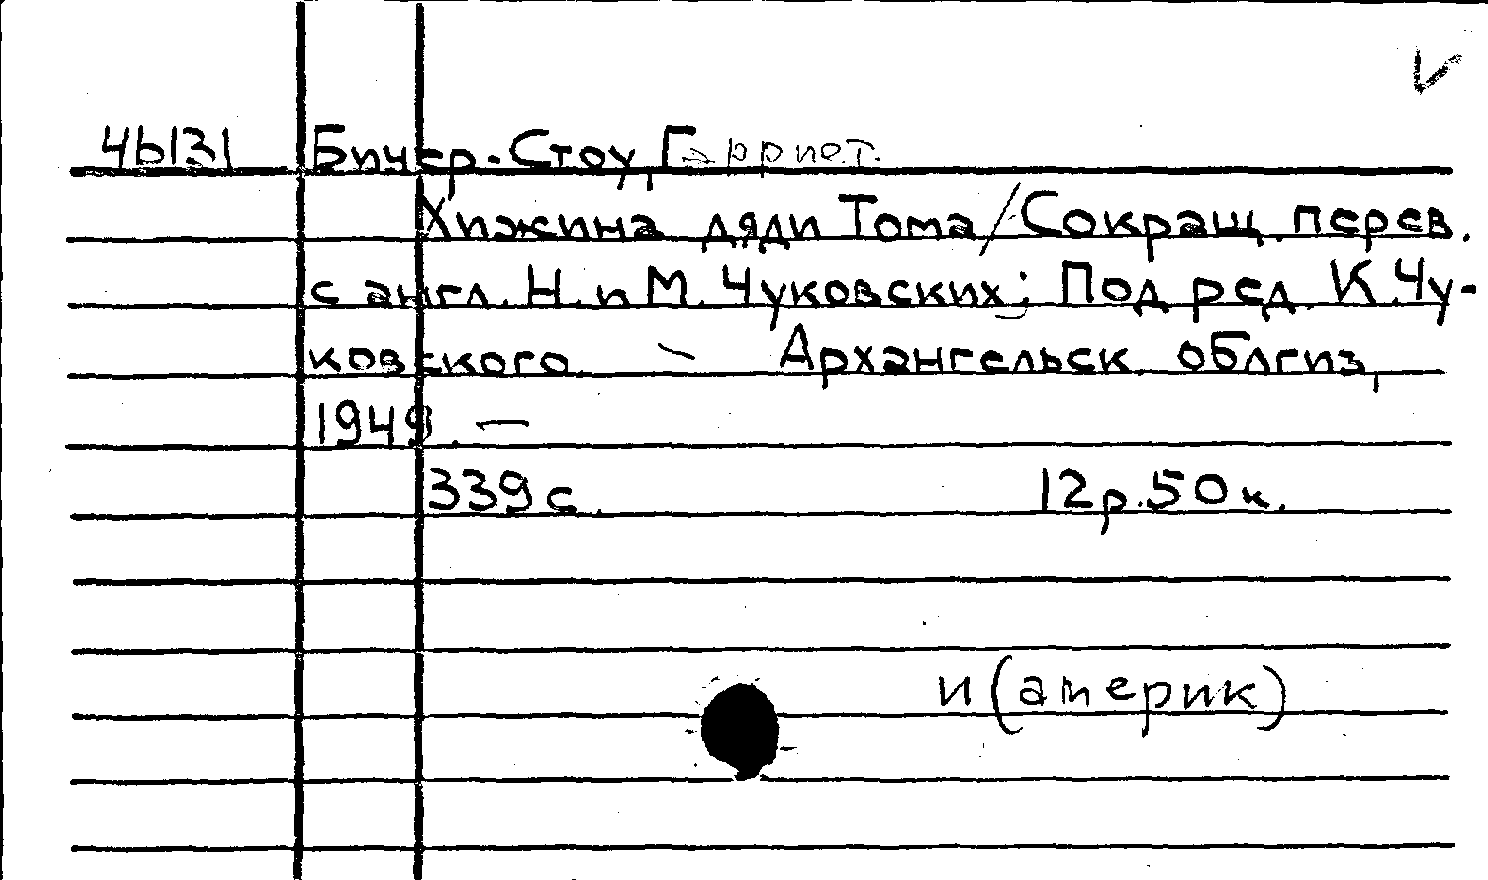 46131 Бичер-Стоу, Гарриет.
Хижина дяди Тома / Сокращ. перев.
с англ. Н. и М. Чуковских; Под ред. К. Чу-
ковского. – Архангельск. облгиз,
1949. –
339 с. 12 р. 50 к.
и (америк)